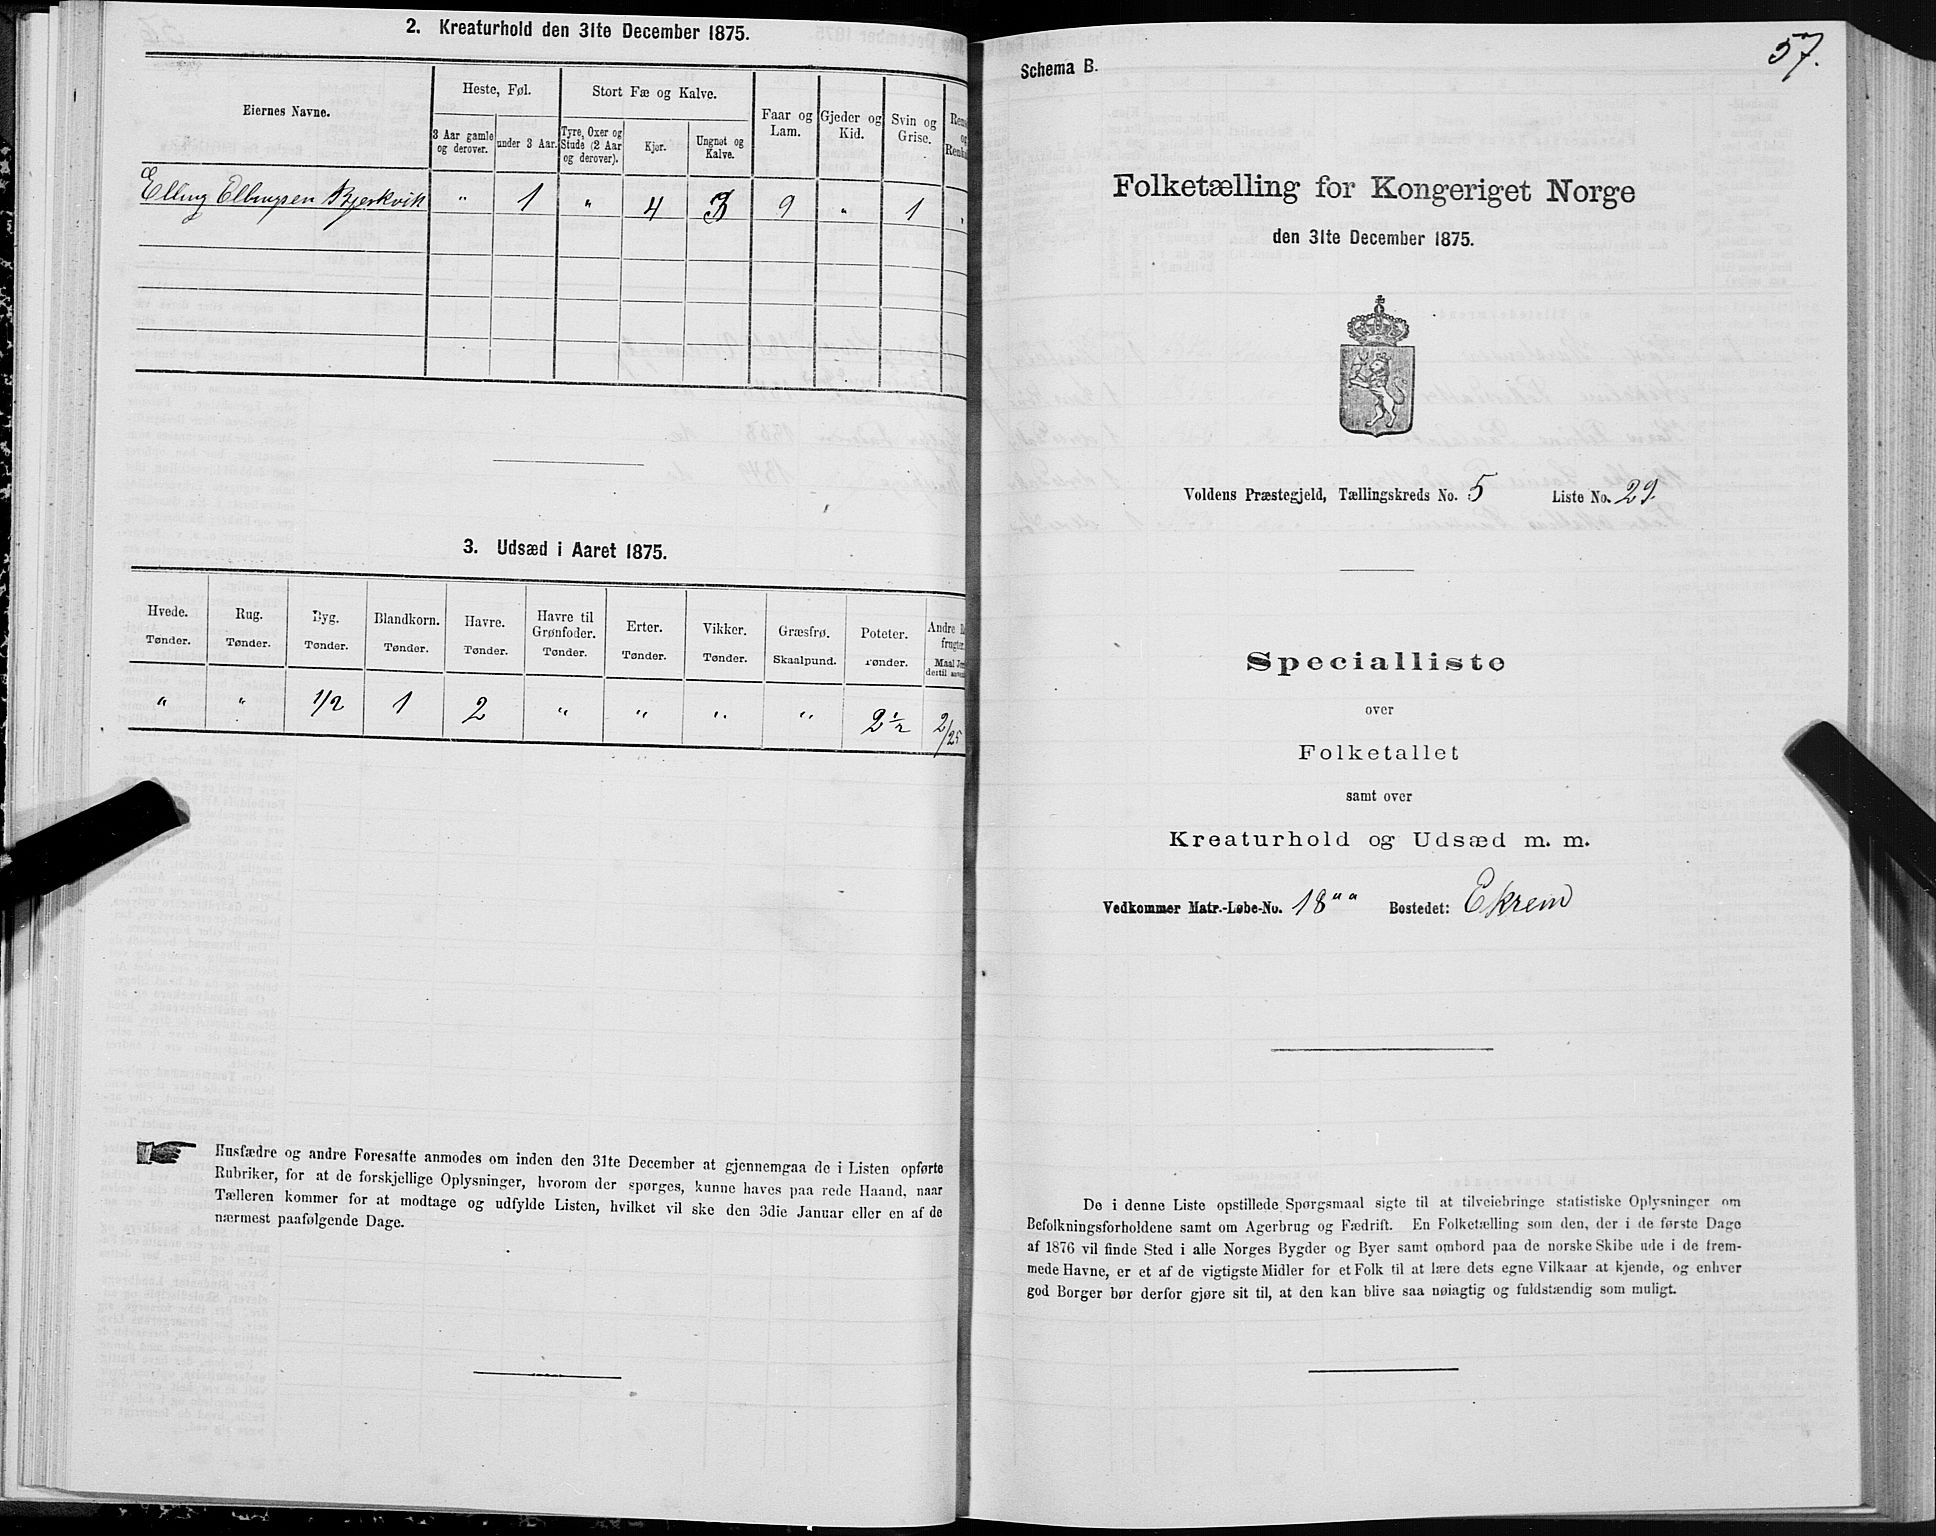 2. Kreaturhold den 31te December 1875.
Eiernes Navne.
Heste, Føl.
Stort Fæ og Kalve.
Faar og Lam.
Gjeder og Kid.
Svin og Grise.
3 Aar gamle og derover.
under 3 Aar.
Tyre, Oxer og Stude (2 Aar og derover).
Kjør.
Ungnøt og Kalve.
Elling Ellingsen Bjerkvik " 1 " 4 3 9 " 1
3. Udsæd i Aaret 1875.
Hvede. Rug. Byg. Blandkorn. Havre. Havre til Grønfoder. Erter. Vikker. Græsfrø. Poteter. Andre
Tønder. Tønder. Tønder. Tønder. Tønder. Tønder. Tønder. Tønder. Skaalpund. Tønder. Maal
" " 1/2 1 2 " " " " 2 1/2 2/25
Husfædre og andre Foresatte anmodes om inden den 31te December at gjennemgaa de i Listen opførte
Rubriker, for at de forskjellige Oplysninger, hvorom der spørges, kunne haves paa rede Haand, naar
Tælleren kommer for at modtage og udfylde Listen, hvilket vil ske den 3die Januar eller en af de
nærmest paafølgende Dage.
57.
Schema B.
Folketælling for Kongeriget Norge
den 31te December 1875.
Voldens Præstegjeld, Tællingskreds No. 5 Liste No. 29.
Specialliste
over
Folketallet
samt over
Kreaturhold og Udsæd m. m.
Vedkommer Matr.-Løbe-No. 18 a a Bostedet: Ekrem
De i denne Liste opstillede Spørgsmaal sigte til at tilveiebringe statistiske Oplysninger om
Befolkningsforholdene samt om Agerbrug og Fædrift. En Folketælling som den, der i de første Dage
af 1876 vil finde Sted i alle Norges Bygder og Byer samt ombord paa de norske Skibe ude i de frem-
mede Havne, er et af de vigtigste Midler for et Folk til at lære dets egne Vilkaar at kjende, og enhver
god Borger bør derfor gjøre sit til, at den kan blive saa nøiagtig og fuldstændig som muligt.